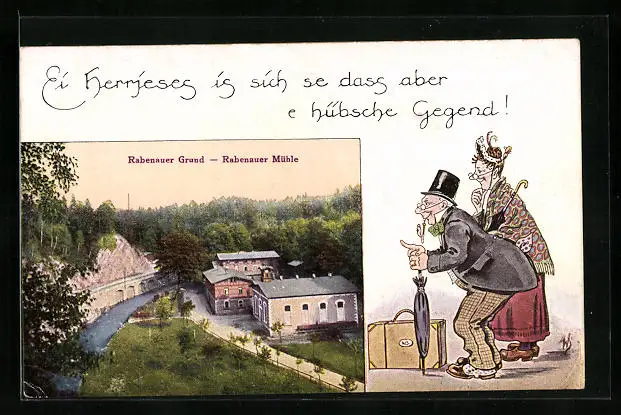 Ei Herrjeses is sich se dass aber
e hübsche Gegend!
Rabenauer Grund — Rabenauer Mühle